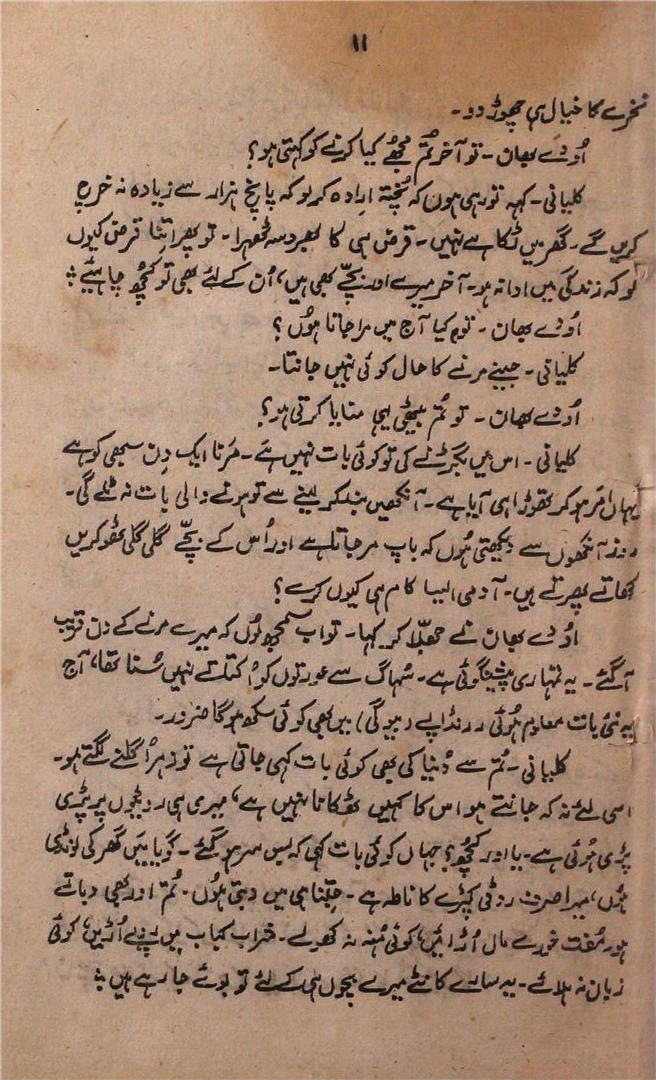 ۱۱
نخرے کا خیال ہی چھوڑ دو۔
اُودے بھان۔ تو آخر تم مجھے کیا کرنے کو کہتی ہو؟
کلیانی۔ کہہ تو رہی ہوں کہ پُختہ ارادہ کر لو کہ پانچ ہزار سے زیادہ نہ خرچ
کریں گے۔ گھر میں ٹکا ہے نہیں۔ قرض ہی کا بھروسہ ٹھہرا۔ تو پھر اتنا قرض کیوں
لو کہ زندگی میں ادا نہ ہو۔ آخر میرے اور بچّے بھی ہیں، اُن کے لئے بھی تو کچھ چاہئیے ؞
اُودے بھان۔ تو کیا آج میں مرا جاتا ہوُں ؟
کلیانی۔ جینے مرنے کا حال کوئی نہیں جانتا۔
اُودے بھان۔ تو تُم بیٹھی یہی منایا کرتی ہو؟
کلیانی۔ اس میں بگڑنے کی تو کوئی بات نہیں ہے۔ مَرنا ایک دِن سبھی کو ہے
یہاں امَر ہو کر تھوڑا ہی آیا ہے۔ آنکھیں بند کر لینے سے تو ہونے والی بات نہ ٹلے گی۔
روز آنکھوں سے دیکھتی ہوُں کہ باپ مر جاتا ہے اور اُس کے بچّے گلی گلی ٹھوکریں
کھاتے پھرتے ہیں۔ آدمی ایسا کام ہی کیوں کرے؟
اُودے بھان نے جھلّا کر کہا۔ تو اب سمجھ لوُں کہ میرے مرنے کے دن قریب
آ گئے۔ یہ تمہاری پیشینگوئی ہے۔ سُہاگ سے عورتوں کو اُکتاتے نہیں سُنا تھا، آج
یہ نئی بات معلوم ہُوئی۔ رنڈاپے (بیوگی) میں بھی کوئی سکھ ہو گا ضرور۔
کلیانی۔ تُم سے دُنیا کی بھی کوئی بات کہی جاتی ہے تو زہر اُگلنے لگتے ہو۔
اسی لئے نہ کہ جانتے ہو اس کا کہیں ٹھکانا نہیں ہے، میری ہی روٹیوں پر پڑی
پڑی ہوُئی ہے۔ یا اور کچُھ؟ جہاں کوئی بات کہی کہ بس سر ہو گئے۔ گویا میَں گھر کی لونڈی
ہوُں، میرا صرف روٹی کپڑے کا ناطہ ہے۔ جِتنا ہی میں دبتی ہوُں۔ تُم اور بھی دباتے
ہو۔ مُفت خورے مال اُڑائیں، کوئی مُنہ نہ کھولے۔ شراب کباب میں روپے اُڑیں، کوئی
زبان نہ ہلائے۔ یہ سارے کانٹے میرے بچوں ہی کے لئے تو بوئے جا رہے ہیں ؞